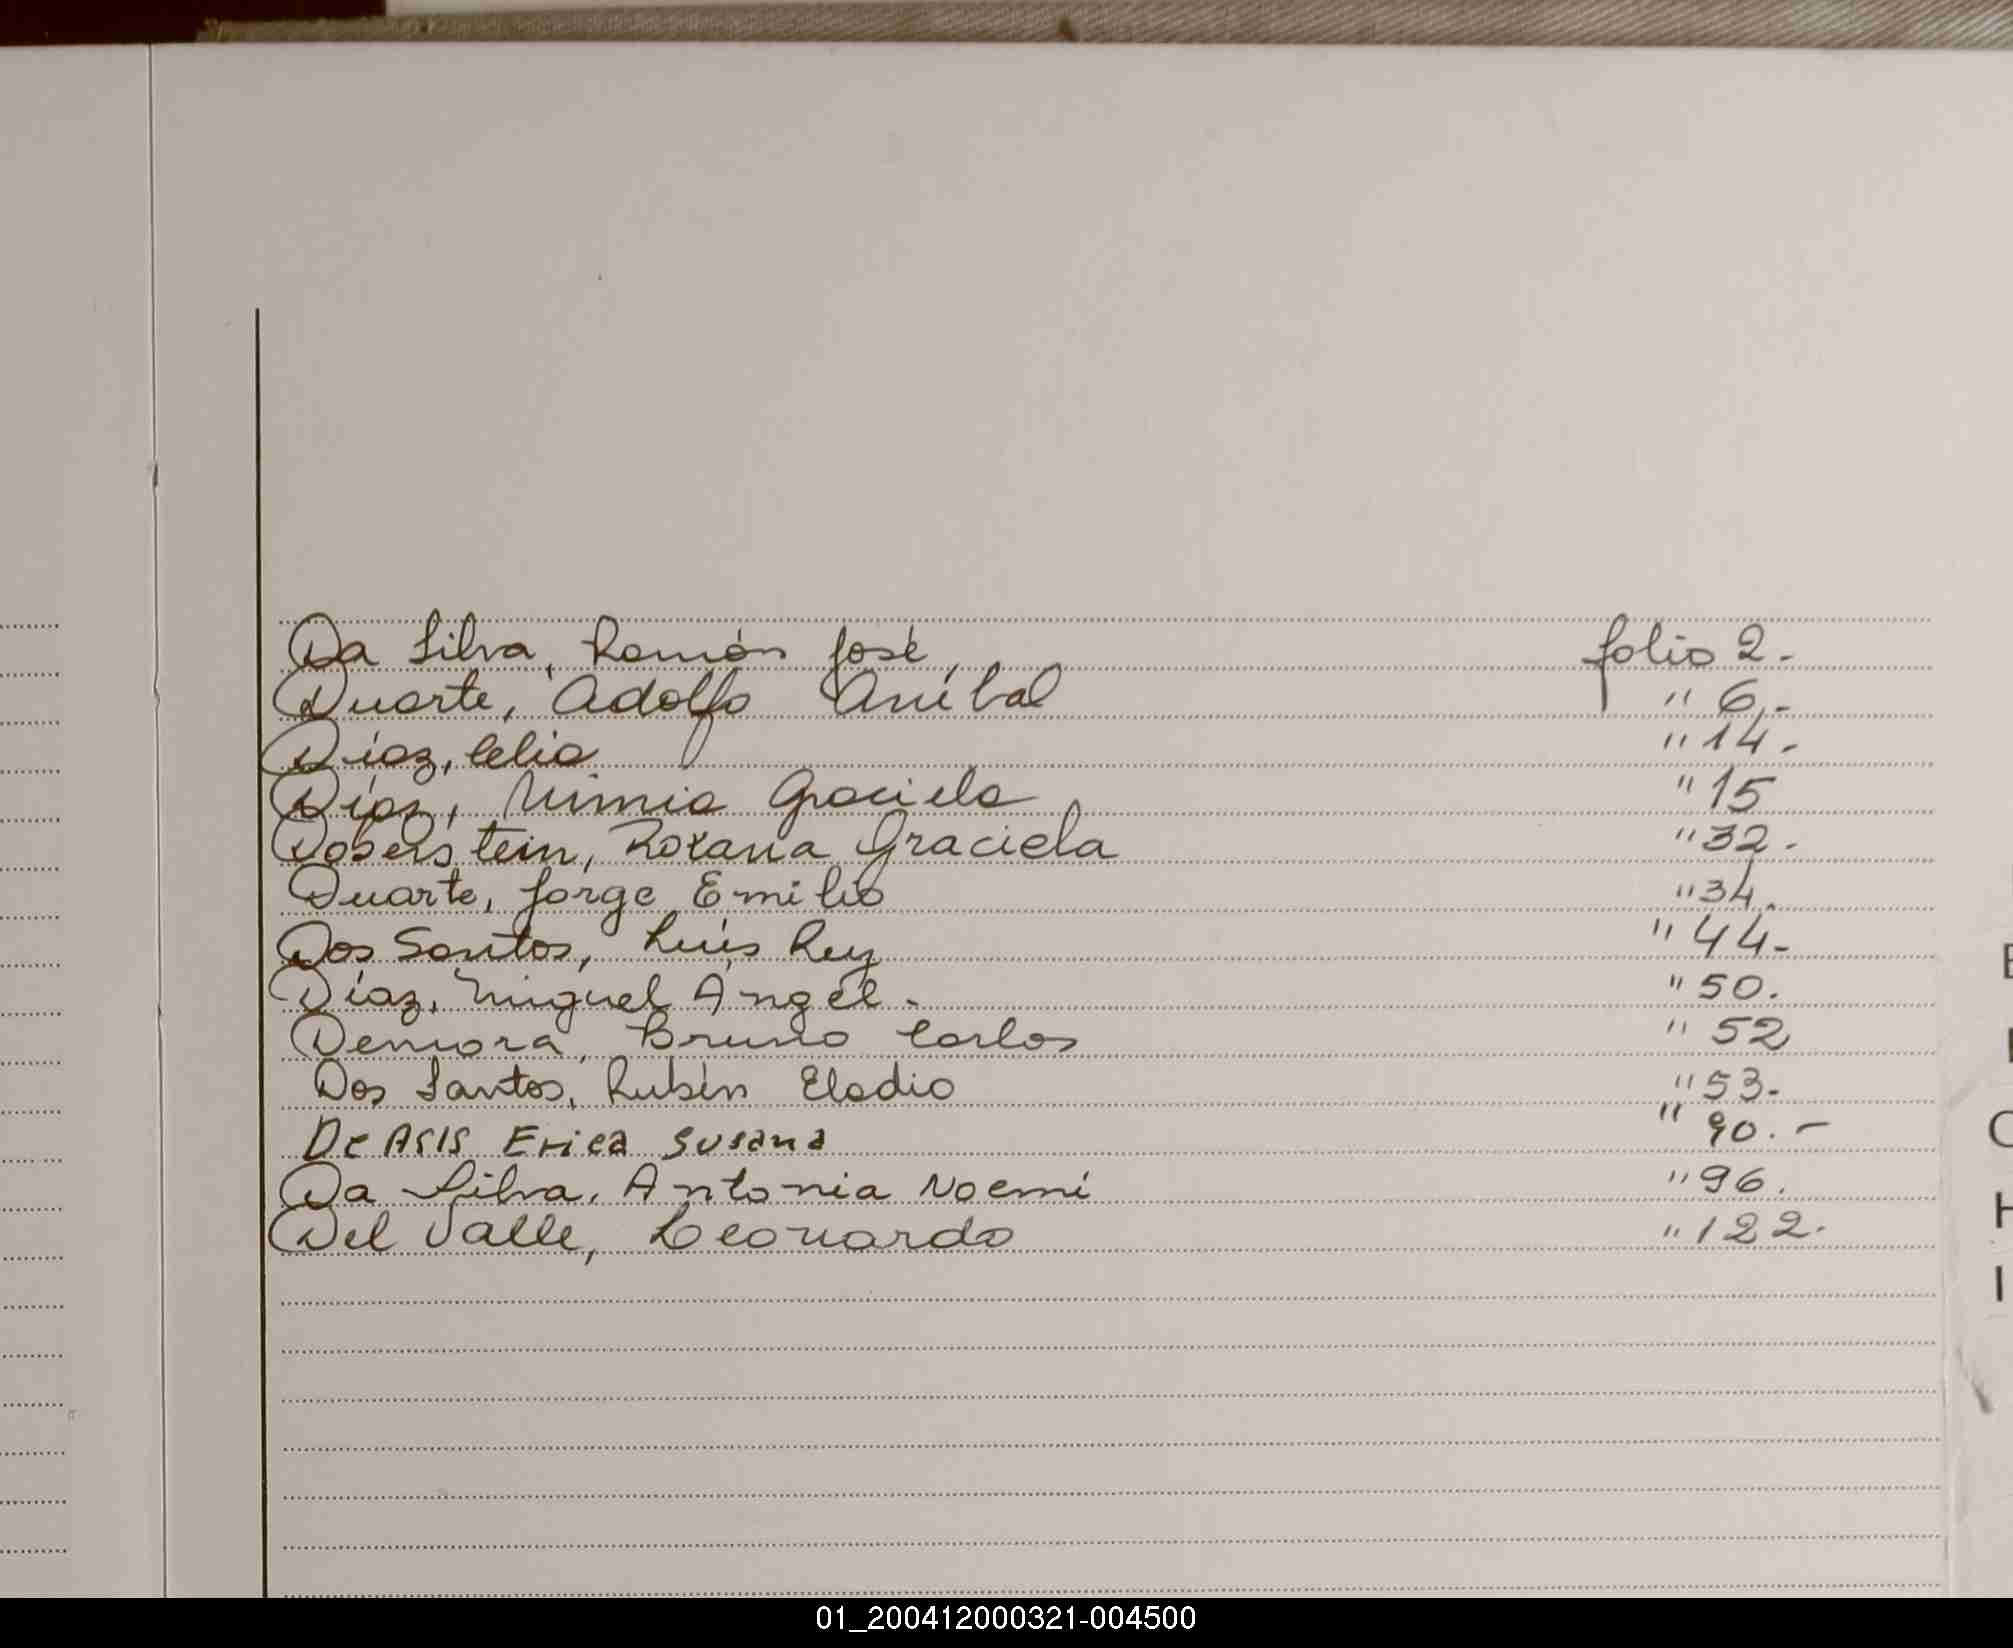 Da Silva, Ramón José, folio 2.-
Duarte, Adolfo Aníbal " 6.-
Díaz, Celia " 14.-
Díaz, Nimia Graciela " 15
Doberstein, Roxana Graciela " 32.-
Duarte, Jorge Emilio " 34.
Dos Santos, Luis Rey " 44.-
Díaz, Miguel Angel.- " 50.
Demora, Bruno Carlos " 52
Dos Santos, Rubén Eladio " 53.-
De Asis Erica Susana " 90.-
Da Silva, Antonia Noemí " 96.
Del Valle, Leonardo " 122.-
H
I
01_200412000321-004500